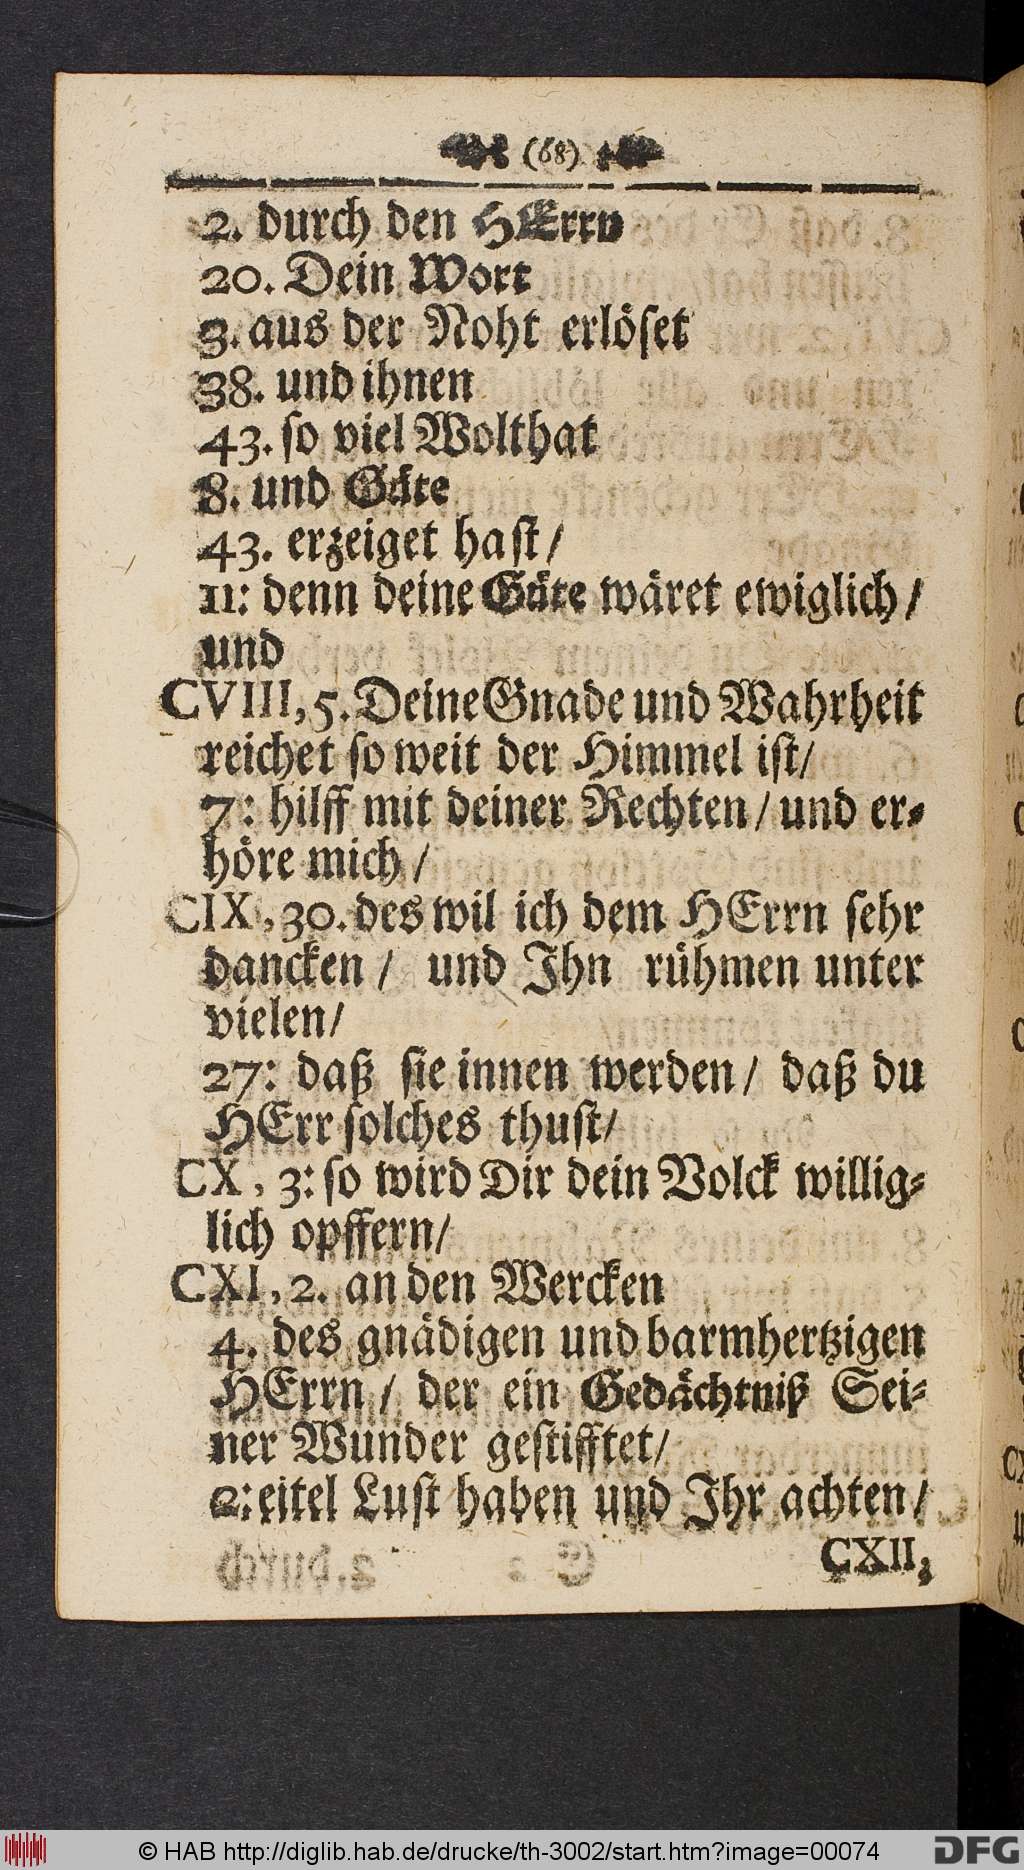 (68)
2. durch den HErrn
20. Dein Wort
3. aus der Noht erlöset
38. und ihnen
43. so viel Wolthat
8. und Güte
43. erzeiget hast /
11: denn deine Güte wäret ewiglich /
und
CVIII, 5. Deine Gnade und Wahrheit
reichet so weit der Himmel ist/
7: hilff mit deiner Rechten / und er-
höre mich /
CIX, 30. des wil ich dem HErrn sehr
dancken / und Ihn rühmen unter
vielen/
27: daß sie innen werden / daß du
HErr solches thust/
CX, 3: so wird Dir dein Volck willig-
lich opffern/
CXI, 2. an den Wercken
4. des gnädigen und barmhertzigen
HErrn / der ein Gedächtniß Sei-
ner Wunder gestifftet/
2: eitel Lust haben und Ihr achten /
CXII,
© HAB http://diglib.hab.de/drucke/th-3002/start.htm?image=00074
DFG